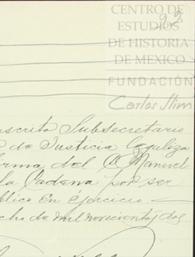 CENTRO DE
ESTUDIOS
DE HISTORIA
DE MEXICO
FUNDACIÓN
Carlos Slim
Subsecretario
de Justicia legaliza
firma del C. Manuel
la Cadena por ser
en Ejercicio
ocho de mil novecientos dos